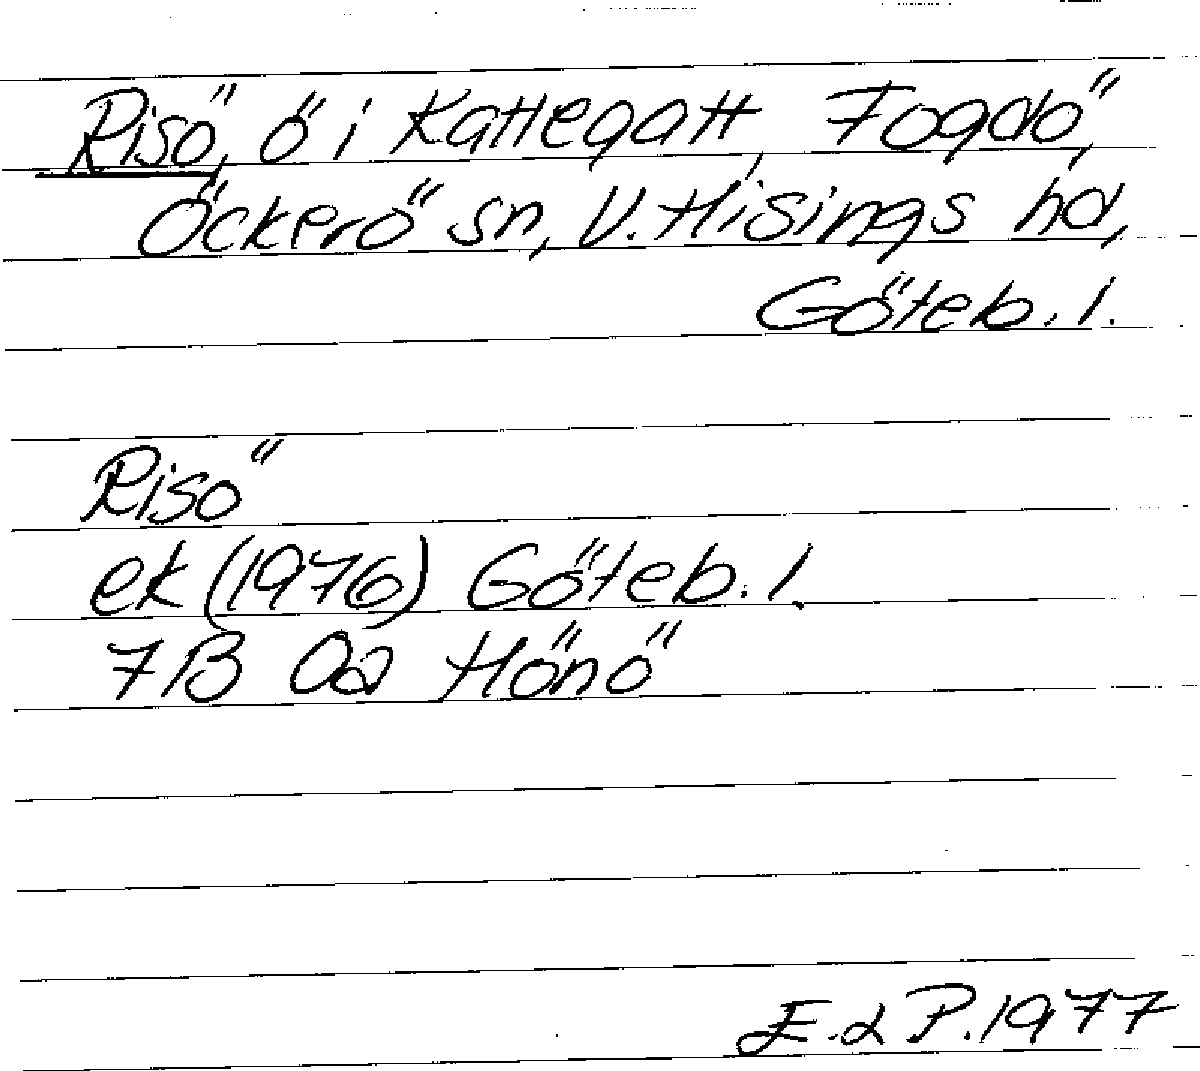 Risö, ö i Kattegatt, Fogdö,
Öckerö sn, V. Hisings hd,
Göteb. l.
Risö
ek (1976) Göteb. l.
7B 0a Hönö
E. d P. 1977